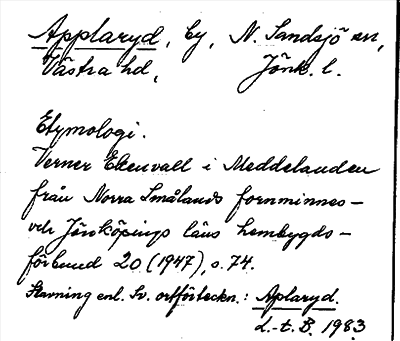 Applaryd, by, N. Sandsjö sn,
Västra hd, Jönk. l.
Etymologi.
Verner Ekenvall i Meddelanden
från Norra Smålands fornminnes-
och Jönköpings läns hembygds-
förbund 20 (1947), s. 74.
Stavning enl. Sv. ortförteckn.: Aplaryd.
d.-t. B. 1983